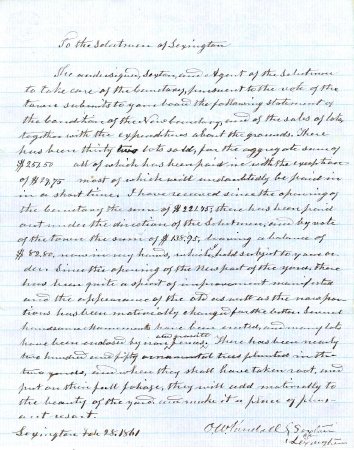 To the Selectmen of Lexington
The undersigned, Sexton, and Agent of the Selectmen
to take care of the Cemetary, pursuant to the vote of the
town submits to your board the following statement of
the Condition of the New Cemetary, and of the sales of lots,
together with the expenditures about the grounds. There
has been thirty two lots sold, for the aggregate sum of
$251.50 all of which has been paid in with the exception
of $29.75 most of which will undoubtedly be paid in
in a short time. I have received since the opening of
the Cemetary the sum of $221.75, there has been paid
out under the direction of the Selectmen, and by vote
of the town the sum of $138.95, leaving a balance of
$82.80, now in my hands, which held subject to your or-
der. Since the opening of the New part of the yard, there
has been quite a spirit of improvement manifested
and the appearance of the old as well as the new por-
tions has been materially changed for the better. Several
handsome Monuments have been erected, and many lots
have been enclosed by iron and granite fences. There has been nearly
two hundred and fifty ornamental trees planted in the
two yards, and when they shall have taken root, and
put on their full foliage, they will add materially to
the beauty of the yard and make it a place of pleas-
ant resort.
Lexington Feb 28, 1861 O. W. Kendall Sexton
of
Lexington